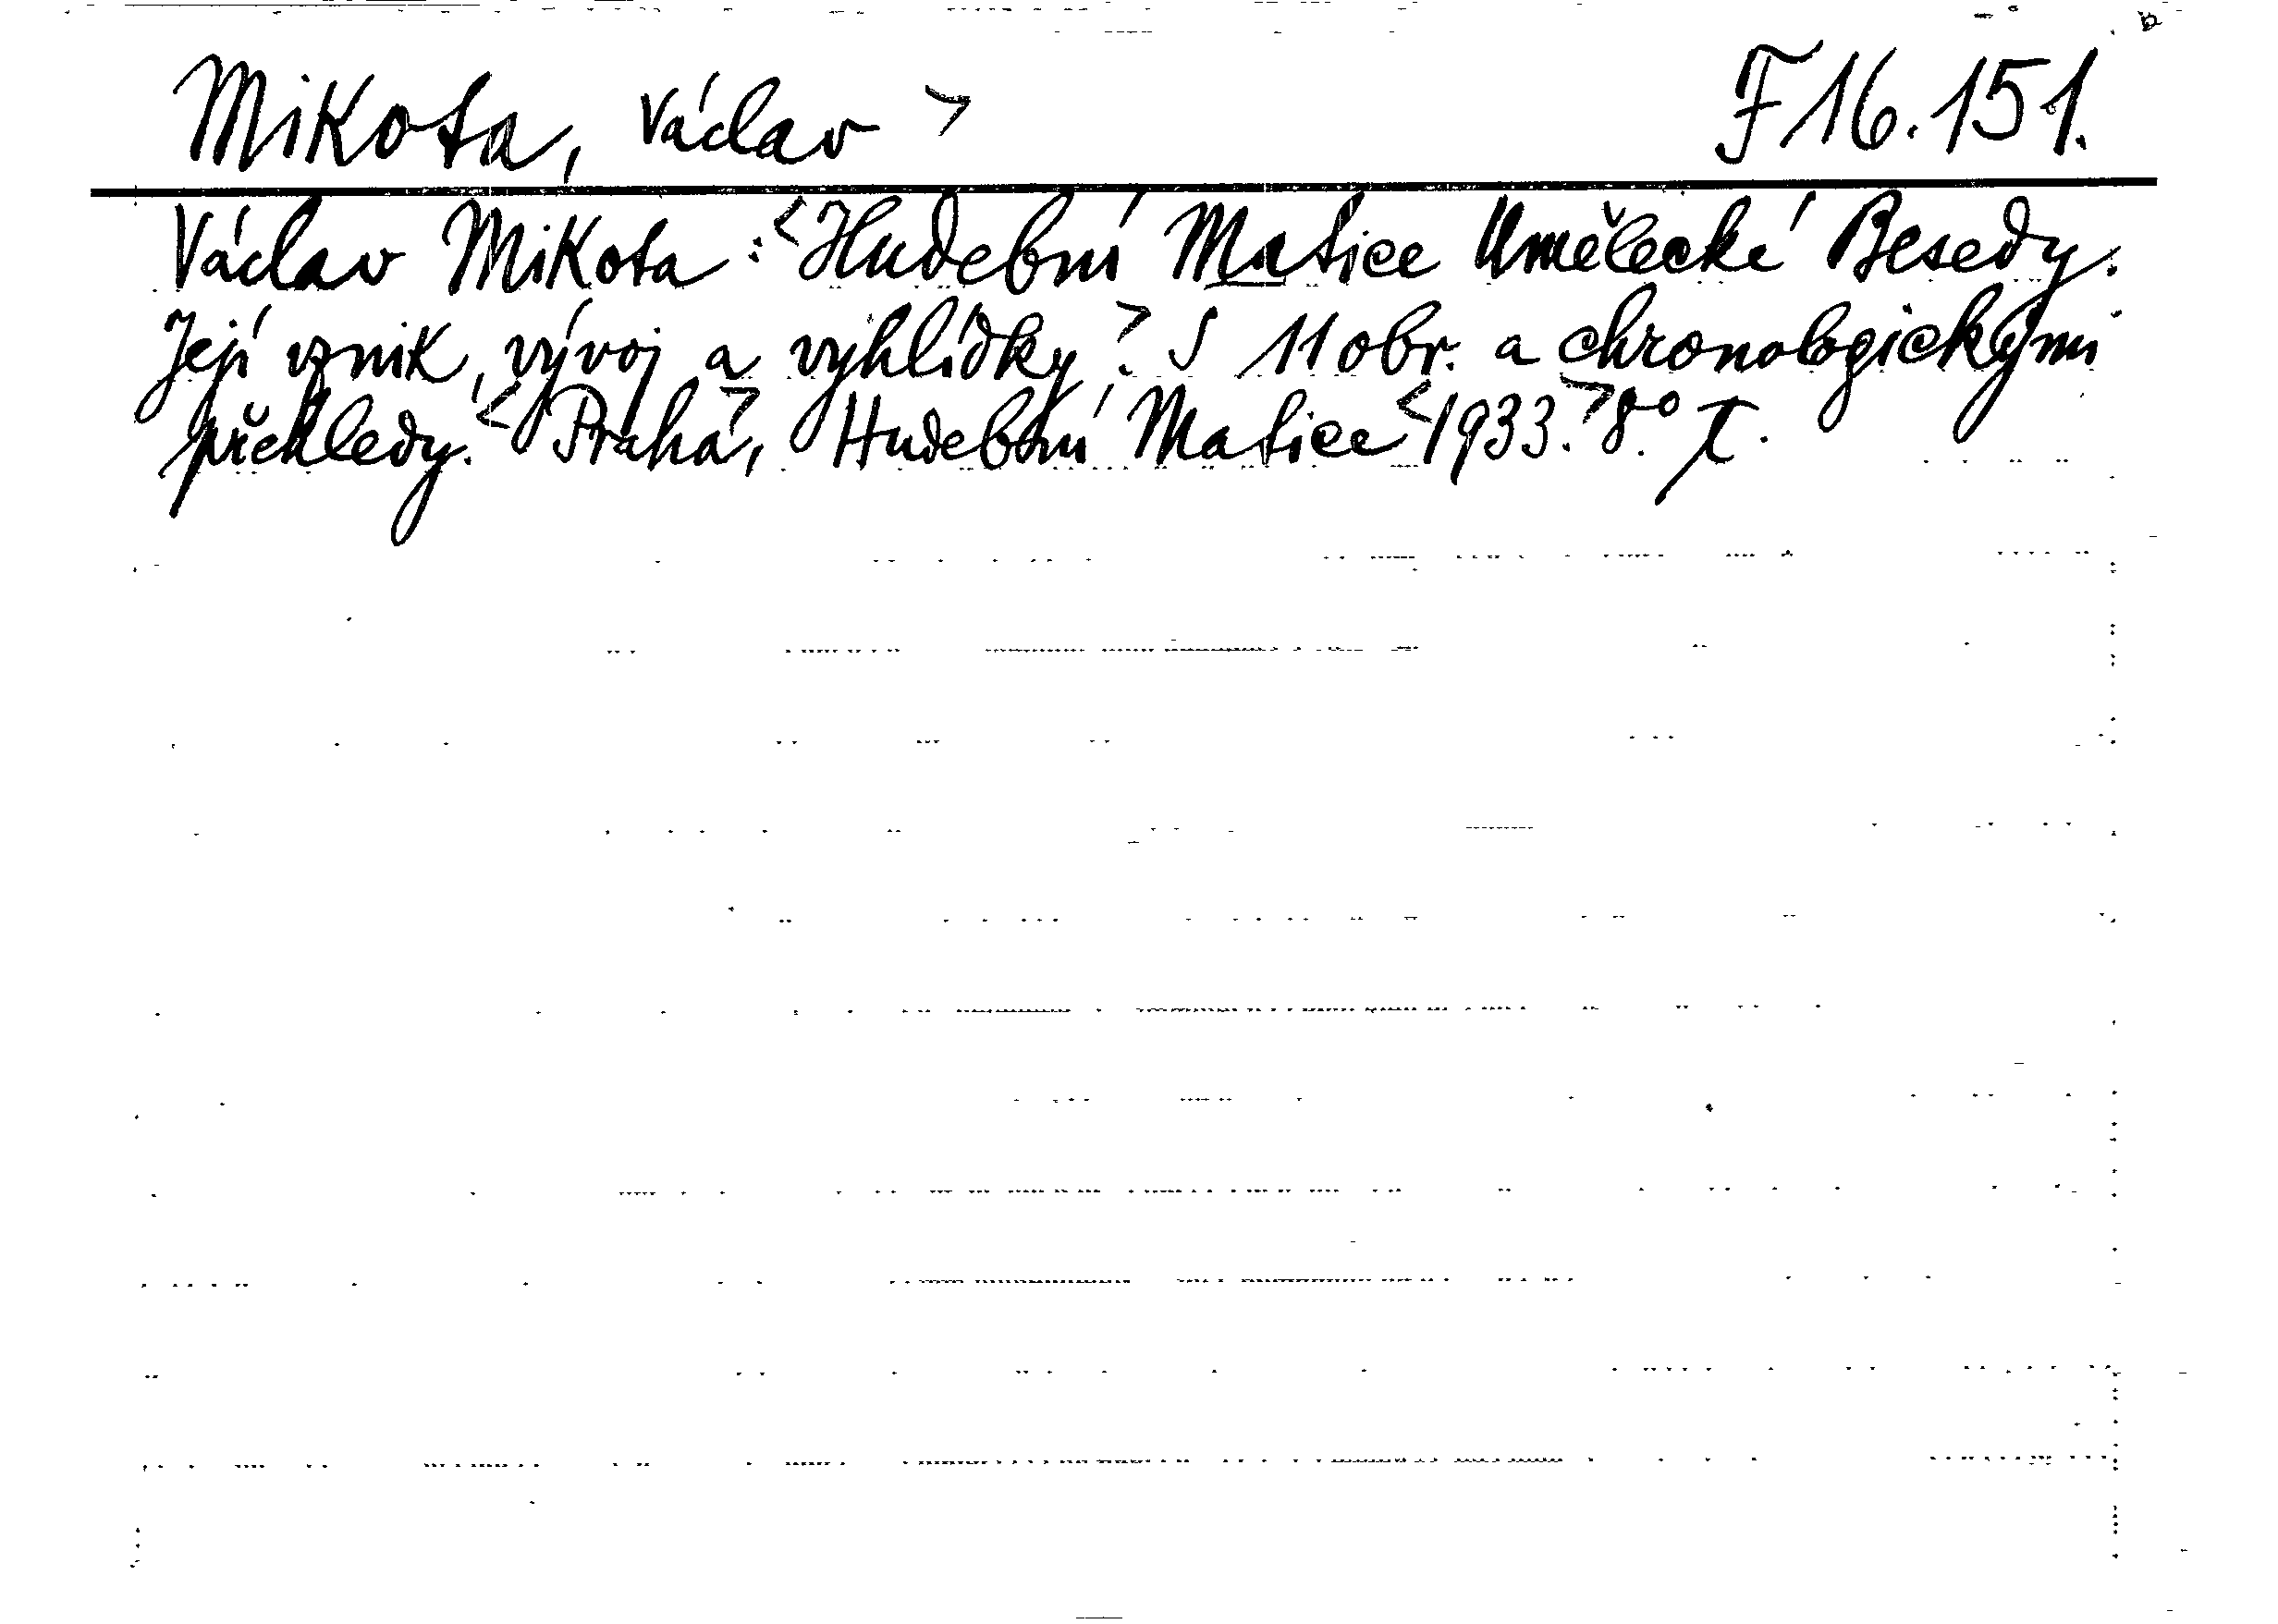 Mikota, Václav > F 16.151.
Václav Mikota: <Hudební Matice Umělecké Besedy.
Její vznik, vývoj a vyhlídky.> S 11 obr. a chronologickými
přehledy. <Praha>, Hudební Matice <1933.> 8.°